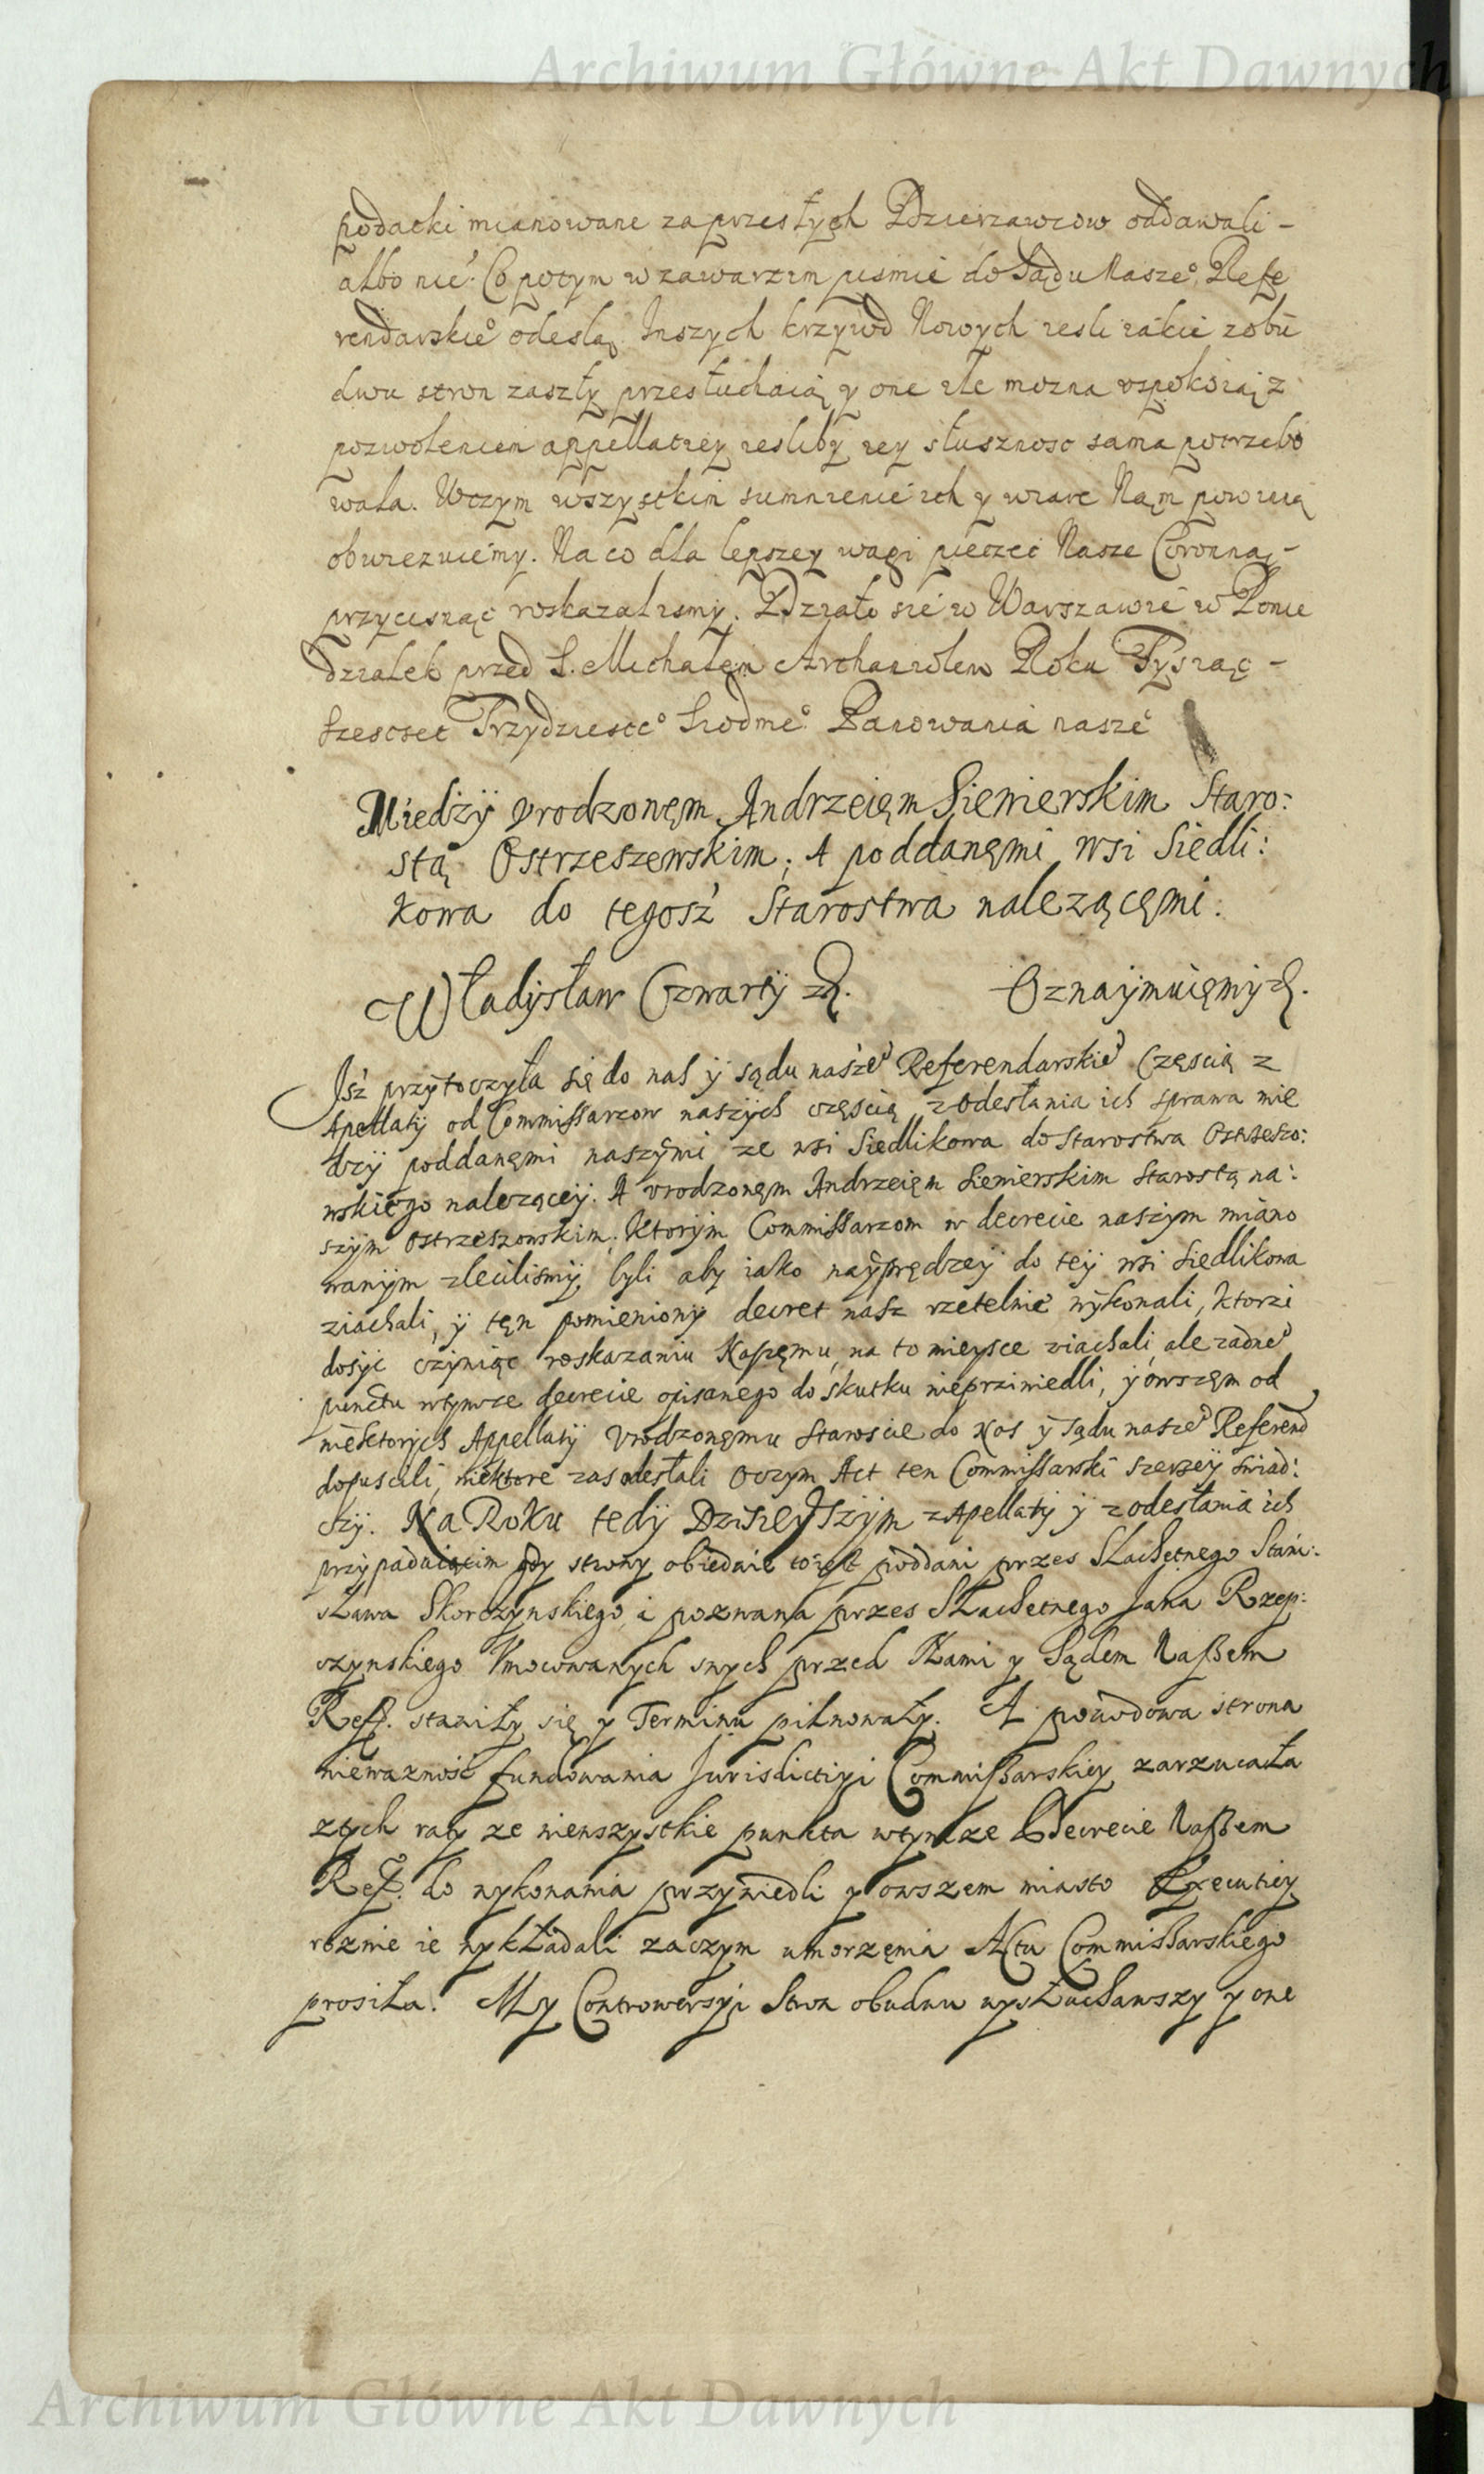 Archiwum Główne Akt Dawnych
podatki mianowane za przeszłych Dzierzawcow oddawali –
albo nie. Co potym w zawartem pismie do Sądu Nasze° Refe
rendarskie° odeslą. Inszych krzywd Nowych iesli iakie z obu
dwu stron zaszły przesłuchaią y one ile mozna uspokoią z
pozwoleniem appellatiey iesliby iey słusznosc sama potrzebo
wała. W czym wszystkim sumnienie ich y wiare Nam powinną
obwiezuiemy. Na co dla lepszey wagi pieczęć Nasze Coronną –
przycisnąc roskazalismy. Działo sie w Warszawie w Ponie
działek przed S. Michałem Archaniołem Roku Tysiąc –
Szescset Trzydziesте° Siodme° Panowania nasze°
Miedzÿ Vrodzonęm Andrzeięm Sienierskim Staro:
stą Ostrzeszewskim, A poddanęmi wsi Siedli:
kowa do tegosz Starostwa nalezącęmi.
Władÿsław Czwartÿ etc. Oznaÿmuięmÿ etc.
Jsz przÿtoczÿła się do nas ÿ sądu nasze° Referendarskie° Częscią z
Apellatÿ od Commissarzow naszÿch częscią z odesłania ich sprawa mie
dzÿ poddanęmi naszÿmi ze wsi Siedlikowa do starostwa Ostrzeszo:
wskiego nalezącÿ. A vrodzonęm Andrzeięm Sienierskim Starostą na:
szÿm Ostrzeszowskim, Ktorÿm Commissarzom w decrecie naszÿm miano
wanÿm zlecilismÿ byli aby iako naÿprędzeÿ do teÿ wsi Siedlikowa
ziachali, ÿ tęn pomienionÿ decret nasz rzetelnie wÿkonali, Ktorzi
dosÿc czÿniąc roskazaniu Naszęmu, na to mieysce ziachali, ale zadne°
punctu wtymze decrecie opisanego do skutku nieprziwiedli, ÿ owszęm od
niektorÿch Appellatÿ Vrodzonęmu Staroscie do Nas ÿ Sądu nasze° Referend
dopuscili, niektore zas odesłali Oczym Act ten Commissarski szerzeÿ swiad:
czÿ. Na Roku tedÿ Dzisieÿszÿm z Apellatÿ ÿ z odesłania ich
przÿpadaiącim gdy strony obiedwie to iest poddani przes Slachetnego Stani:
sława Skorczynskiego a pozwana przes Slachetnego Jana Rzep:
czynskiego Vmocowanych swych przed Nami y Sądem Naszem
Reff. stawiły się y Terminu pilnowały. A powodowa strona
niewaznosc fundowania Jurisdictiyi Commissarskiey zarzucała
z tych raty ze niewszystkie punkta wtymze Decrecie Naszem
Reff. do wykonania przywiedli y owszem miasto Execuciey
roznie ie wykładali zaczym umorzęnia Actu Commissarskiego
prosiła. My Controwersyi Stron obudwu wysłuchawszy y one
Archiwum Główne Akt Dawnych